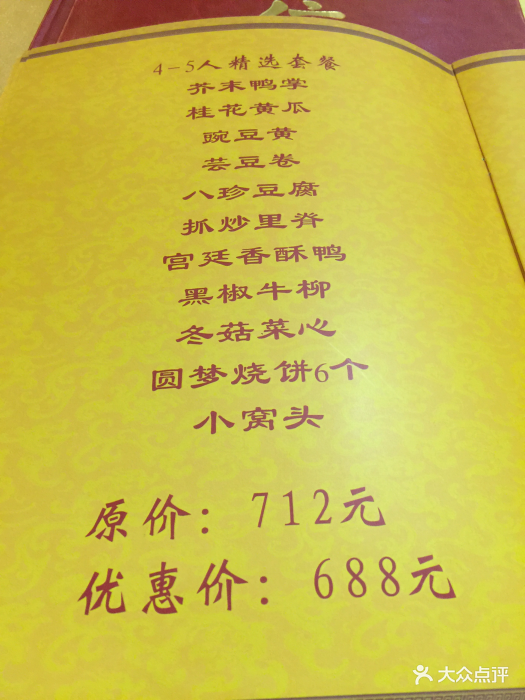 4-5人精选套餐
芥末鸭掌
桂花黄瓜
豌豆黄
芸豆卷
八珍豆腐
抓炒里脊
宫廷香酥鸭
黑椒牛柳
冬菇菜心
圆梦烧饼6个
小窝头
原价：712元
优惠价：688元
大众点评